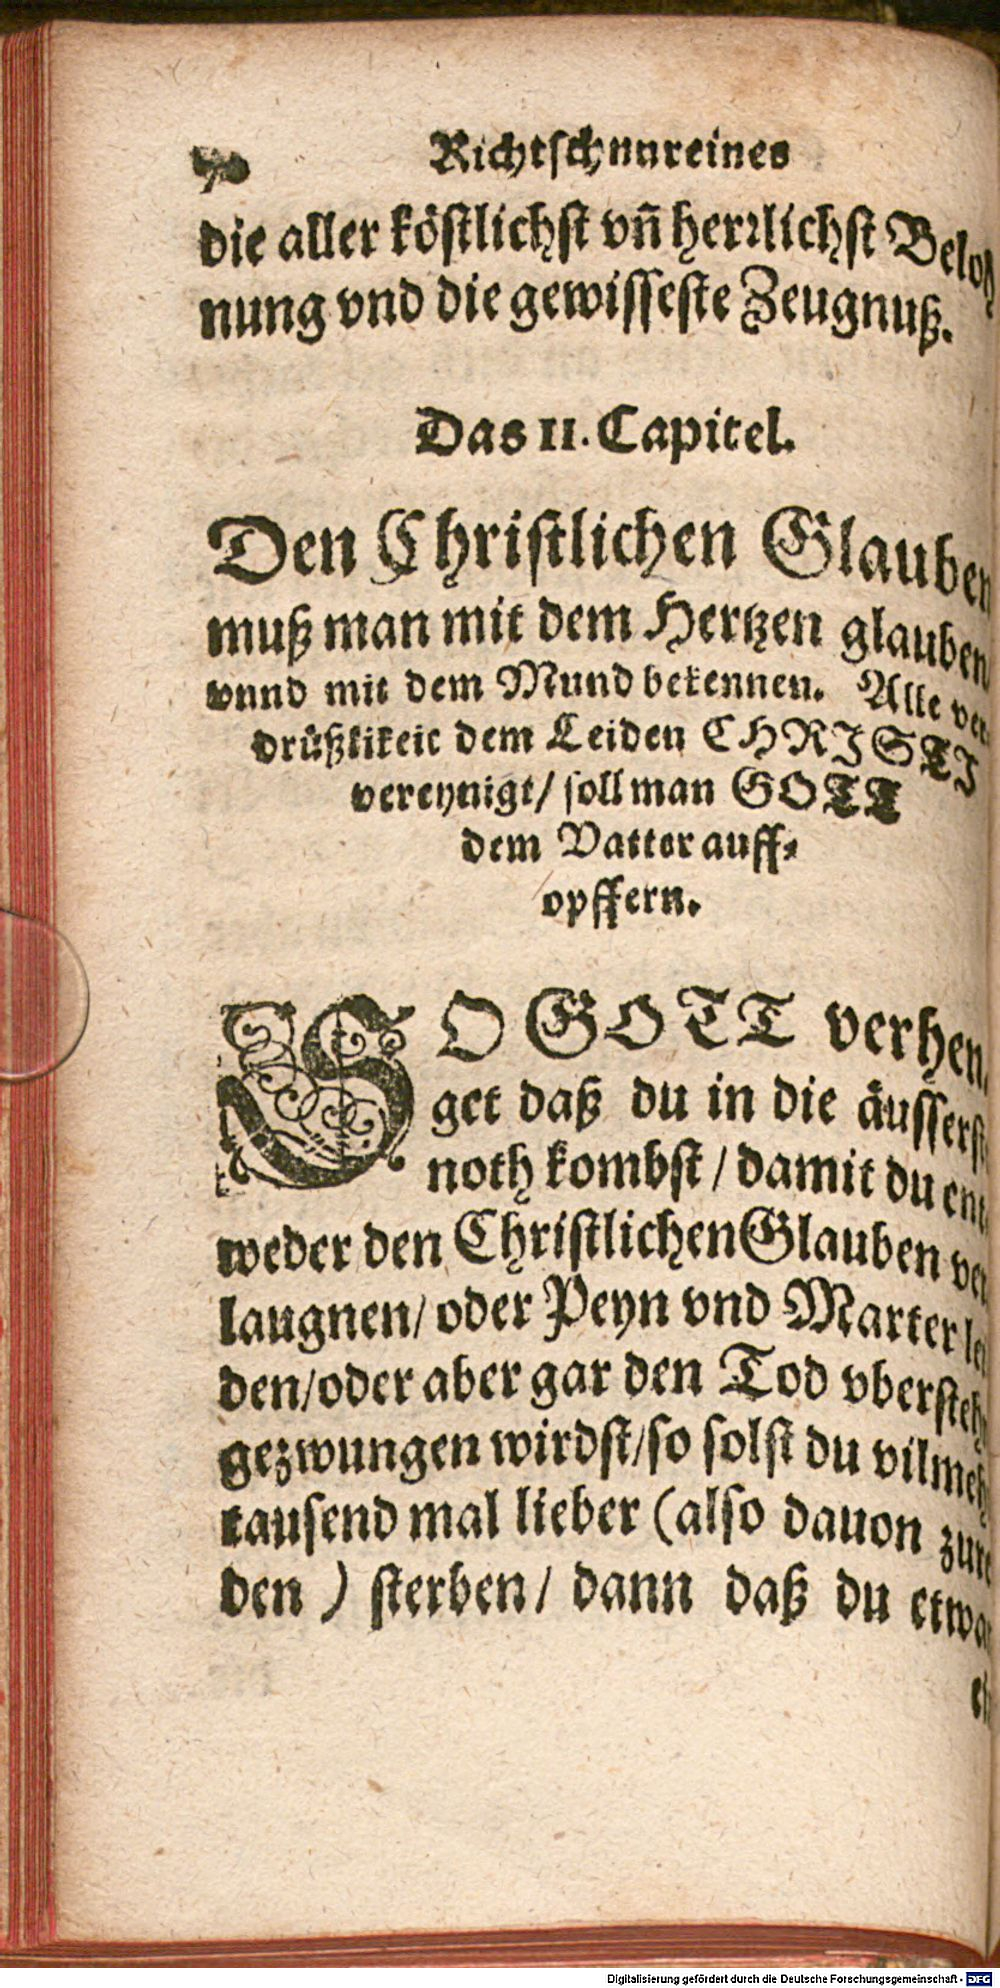 70 Richtschnureines
die aller köstlichst vñ herꝛlichst Beloh
nung vnd die gewisseste Zeugnuß.
Das 11. Capitel.
Den Christlichen Glauben
muß man mit dem Hertzen glauben
vnnd mit dem Mund bekennen. Alle ver
drüßlikeit dem Leiden CHRISTI
vereynigt/ soll man GOTT
dem Vatter auff⸗
opffern.
SO GOTT verhen⸗
get daß du in die äusserst
noth kombst/ damit du ent⸗
weder den Christlichen Glauben ver
laugnen/ oder Peyn vnd Marter lei
den/oder aber gar den Tod vberstehn
gezwungen wirdst/so solst du vilmeh
tausend mal lieber (also dauon zure
den ) sterben/ dann daß du etwa
Digitalisierung gefördert durch die Deutsche Forschungsgemeinschaft - DFG